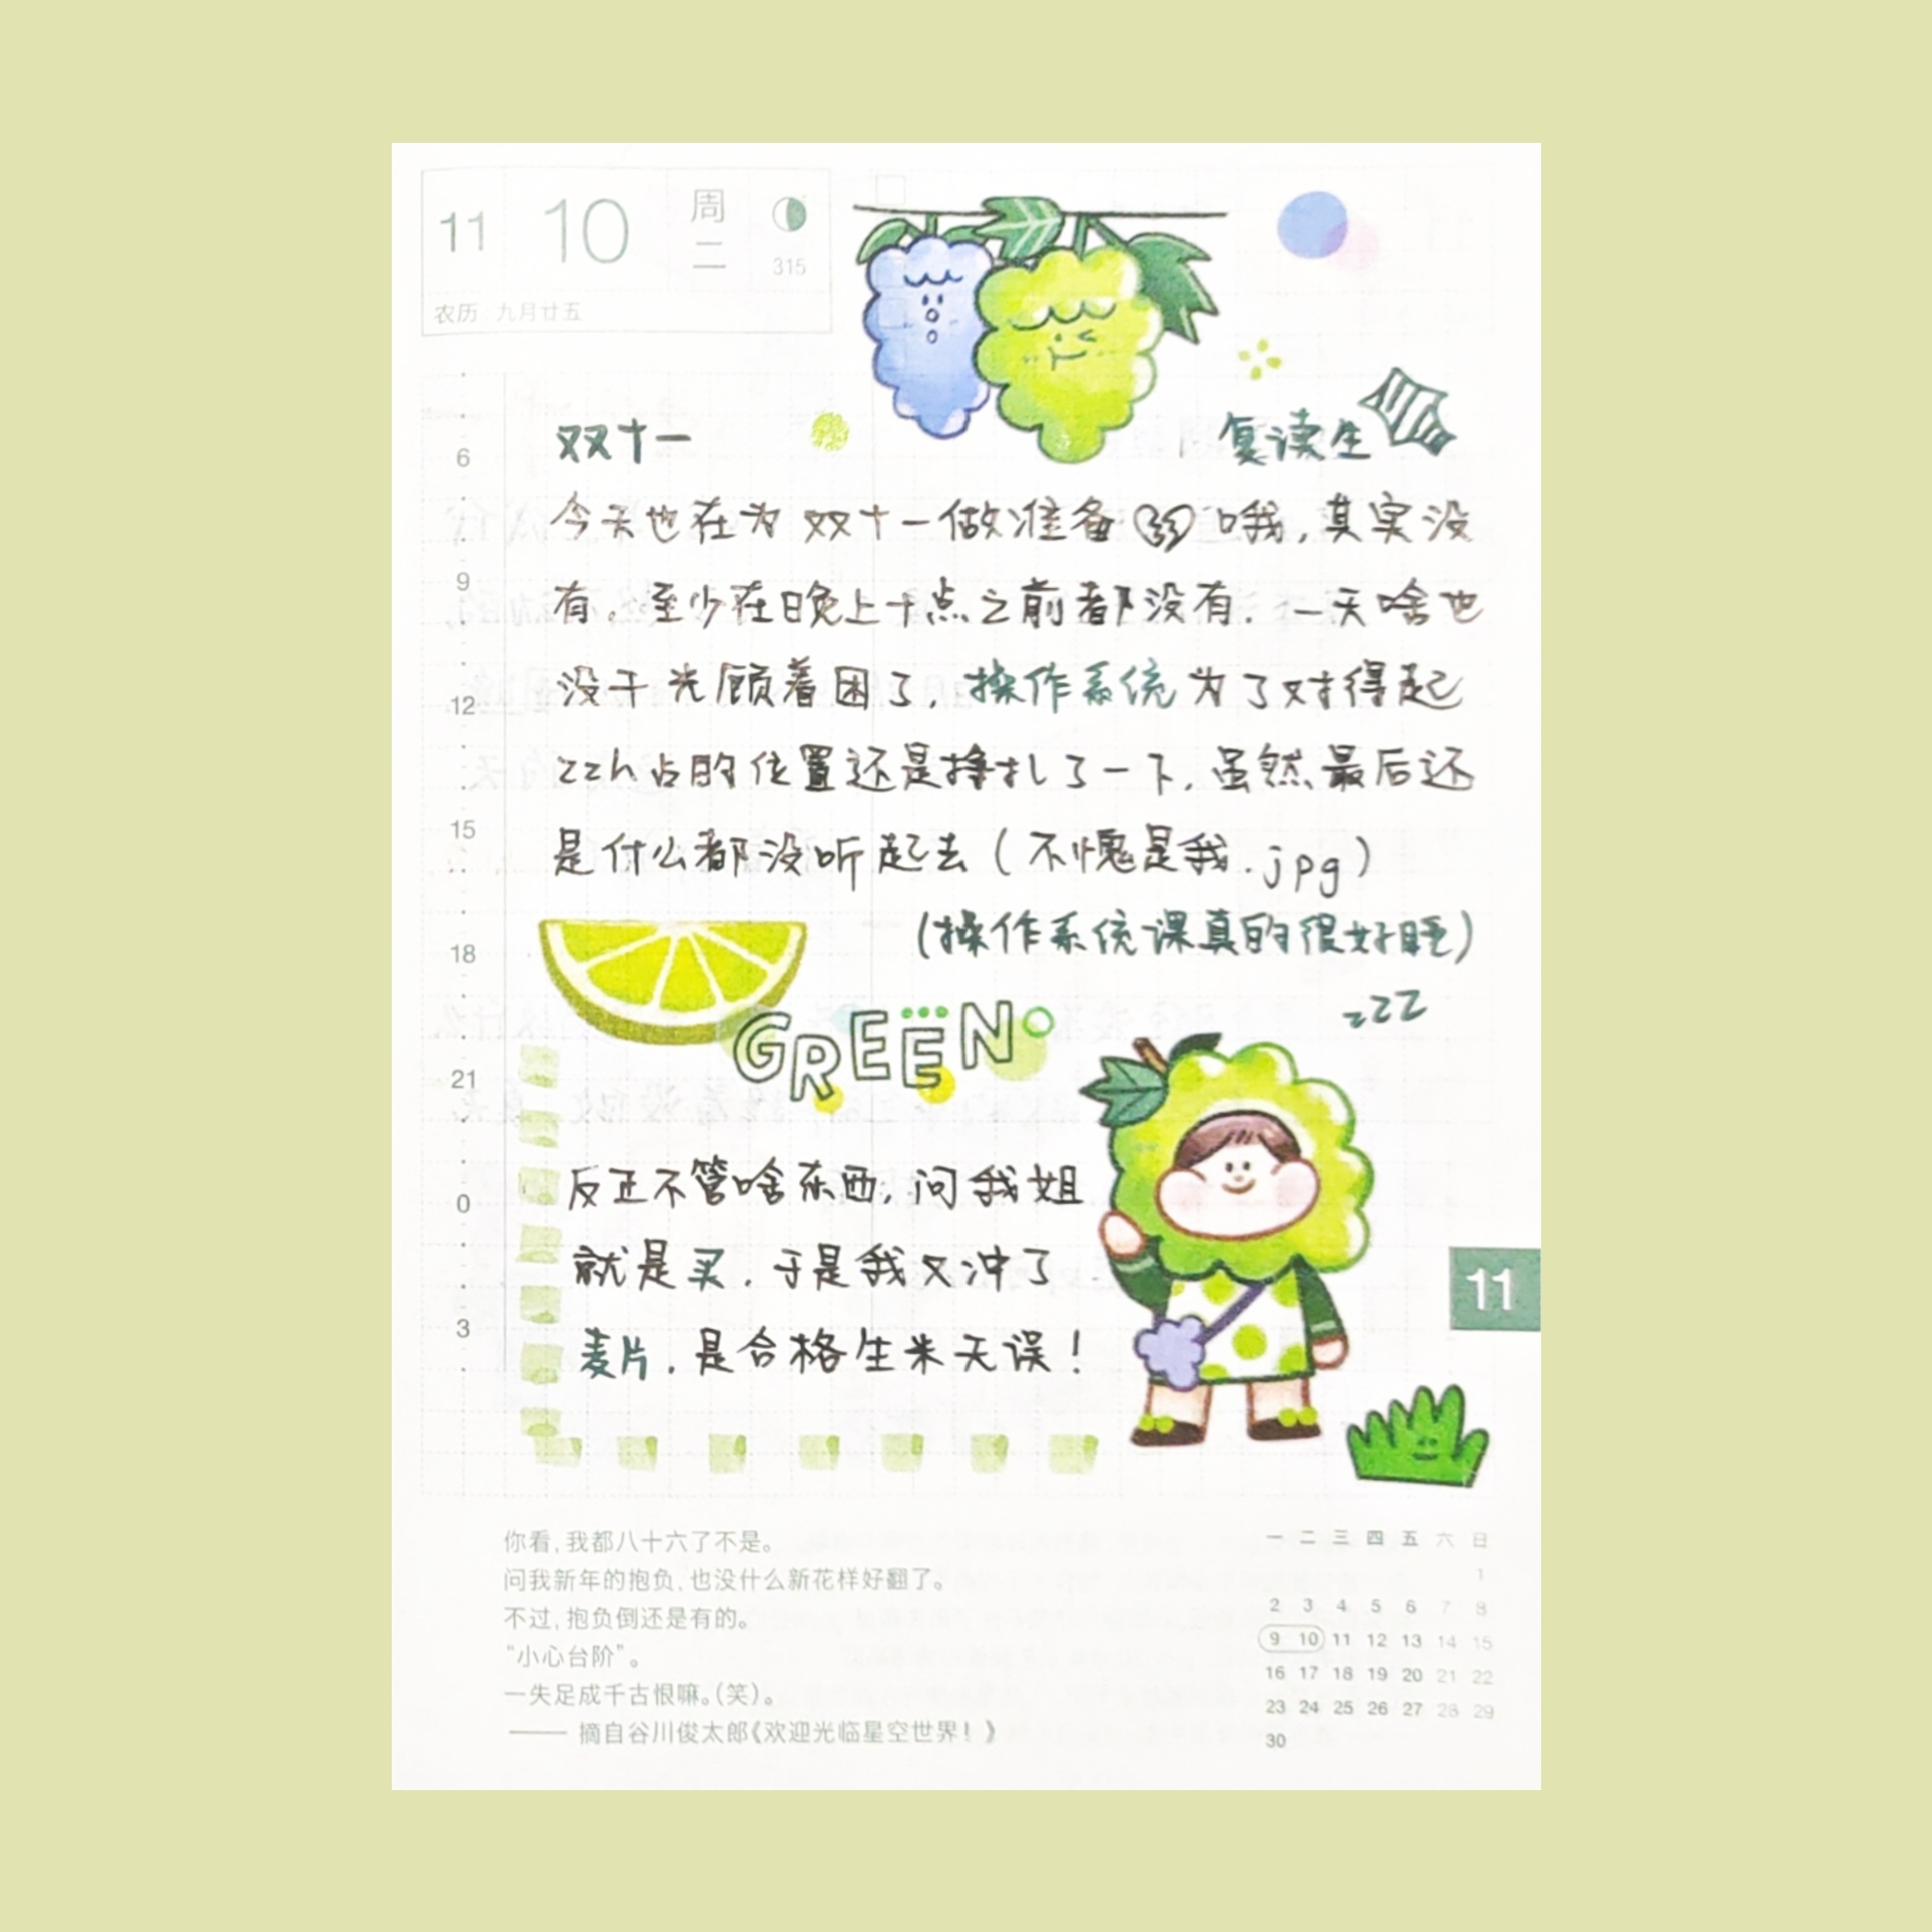 11 10 周二
315
农历 九月廿五
双十一
复读生
今天也在为双十一做准备哦,其实没
有。至少在晚上十点之前都没有.一天啥也
没干光顾着困了,操作系统为了对得起
zzh占的位置还是挣扎了一下,虽然最后还
是什么都没听起去(不愧是我.jpg)
(操作系统课真的很好睡)
zZZ
GREEN
反正不管啥东西,问我姐
就是买.于是我又冲了
麦片.是合格生米无误!
6
9
12
15
18
21
0
3
11
你看,我都八十六了不是。
问我新年的抱负,也没什么新花样好翻了。
不过,抱负倒还是有的。
“小心台阶”。
一失足成千古恨嘛。(笑)。
—— 摘自谷川俊太郎《欢迎光临星空世界!》
一 二 三 四 五 六 日
1
2 3 4 5 6 7 8
9 10 11 12 13 14 15
16 17 18 19 20 21 22
23 24 25 26 27 28 29
30